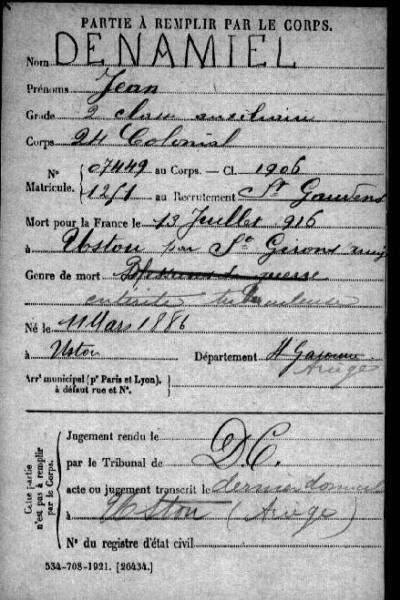 PARTIE À REMPLIR PAR LE CORPS.
Nom DENAMIEL
Prénoms Jean
Grade 2 classe auxiliaire
Corps 24 Colonial
N° Matricule. { 07449 au Corps. — Cl. 1906
1251 au Recrutement St Gaudens
Mort pour la France le 13 Juillet 916
à Ustou par St Girons
Genre de mort Blessures de guerre
entérite tuberculeuse
Né le 11 Mars 1886
à Ustou Département Hte Garonne
Ariège
Arrt municipal (pr Paris et Lyon), à défaut rue et N°.
Cette partie n'est pas à remplir par le Corps.
Jugement rendu le
par le Tribunal de D.C.
acte ou jugement transcrit le dernier domicile
à Ustou (Ariège)
N° du registre d'état civil
534-708-1921. [26434.]